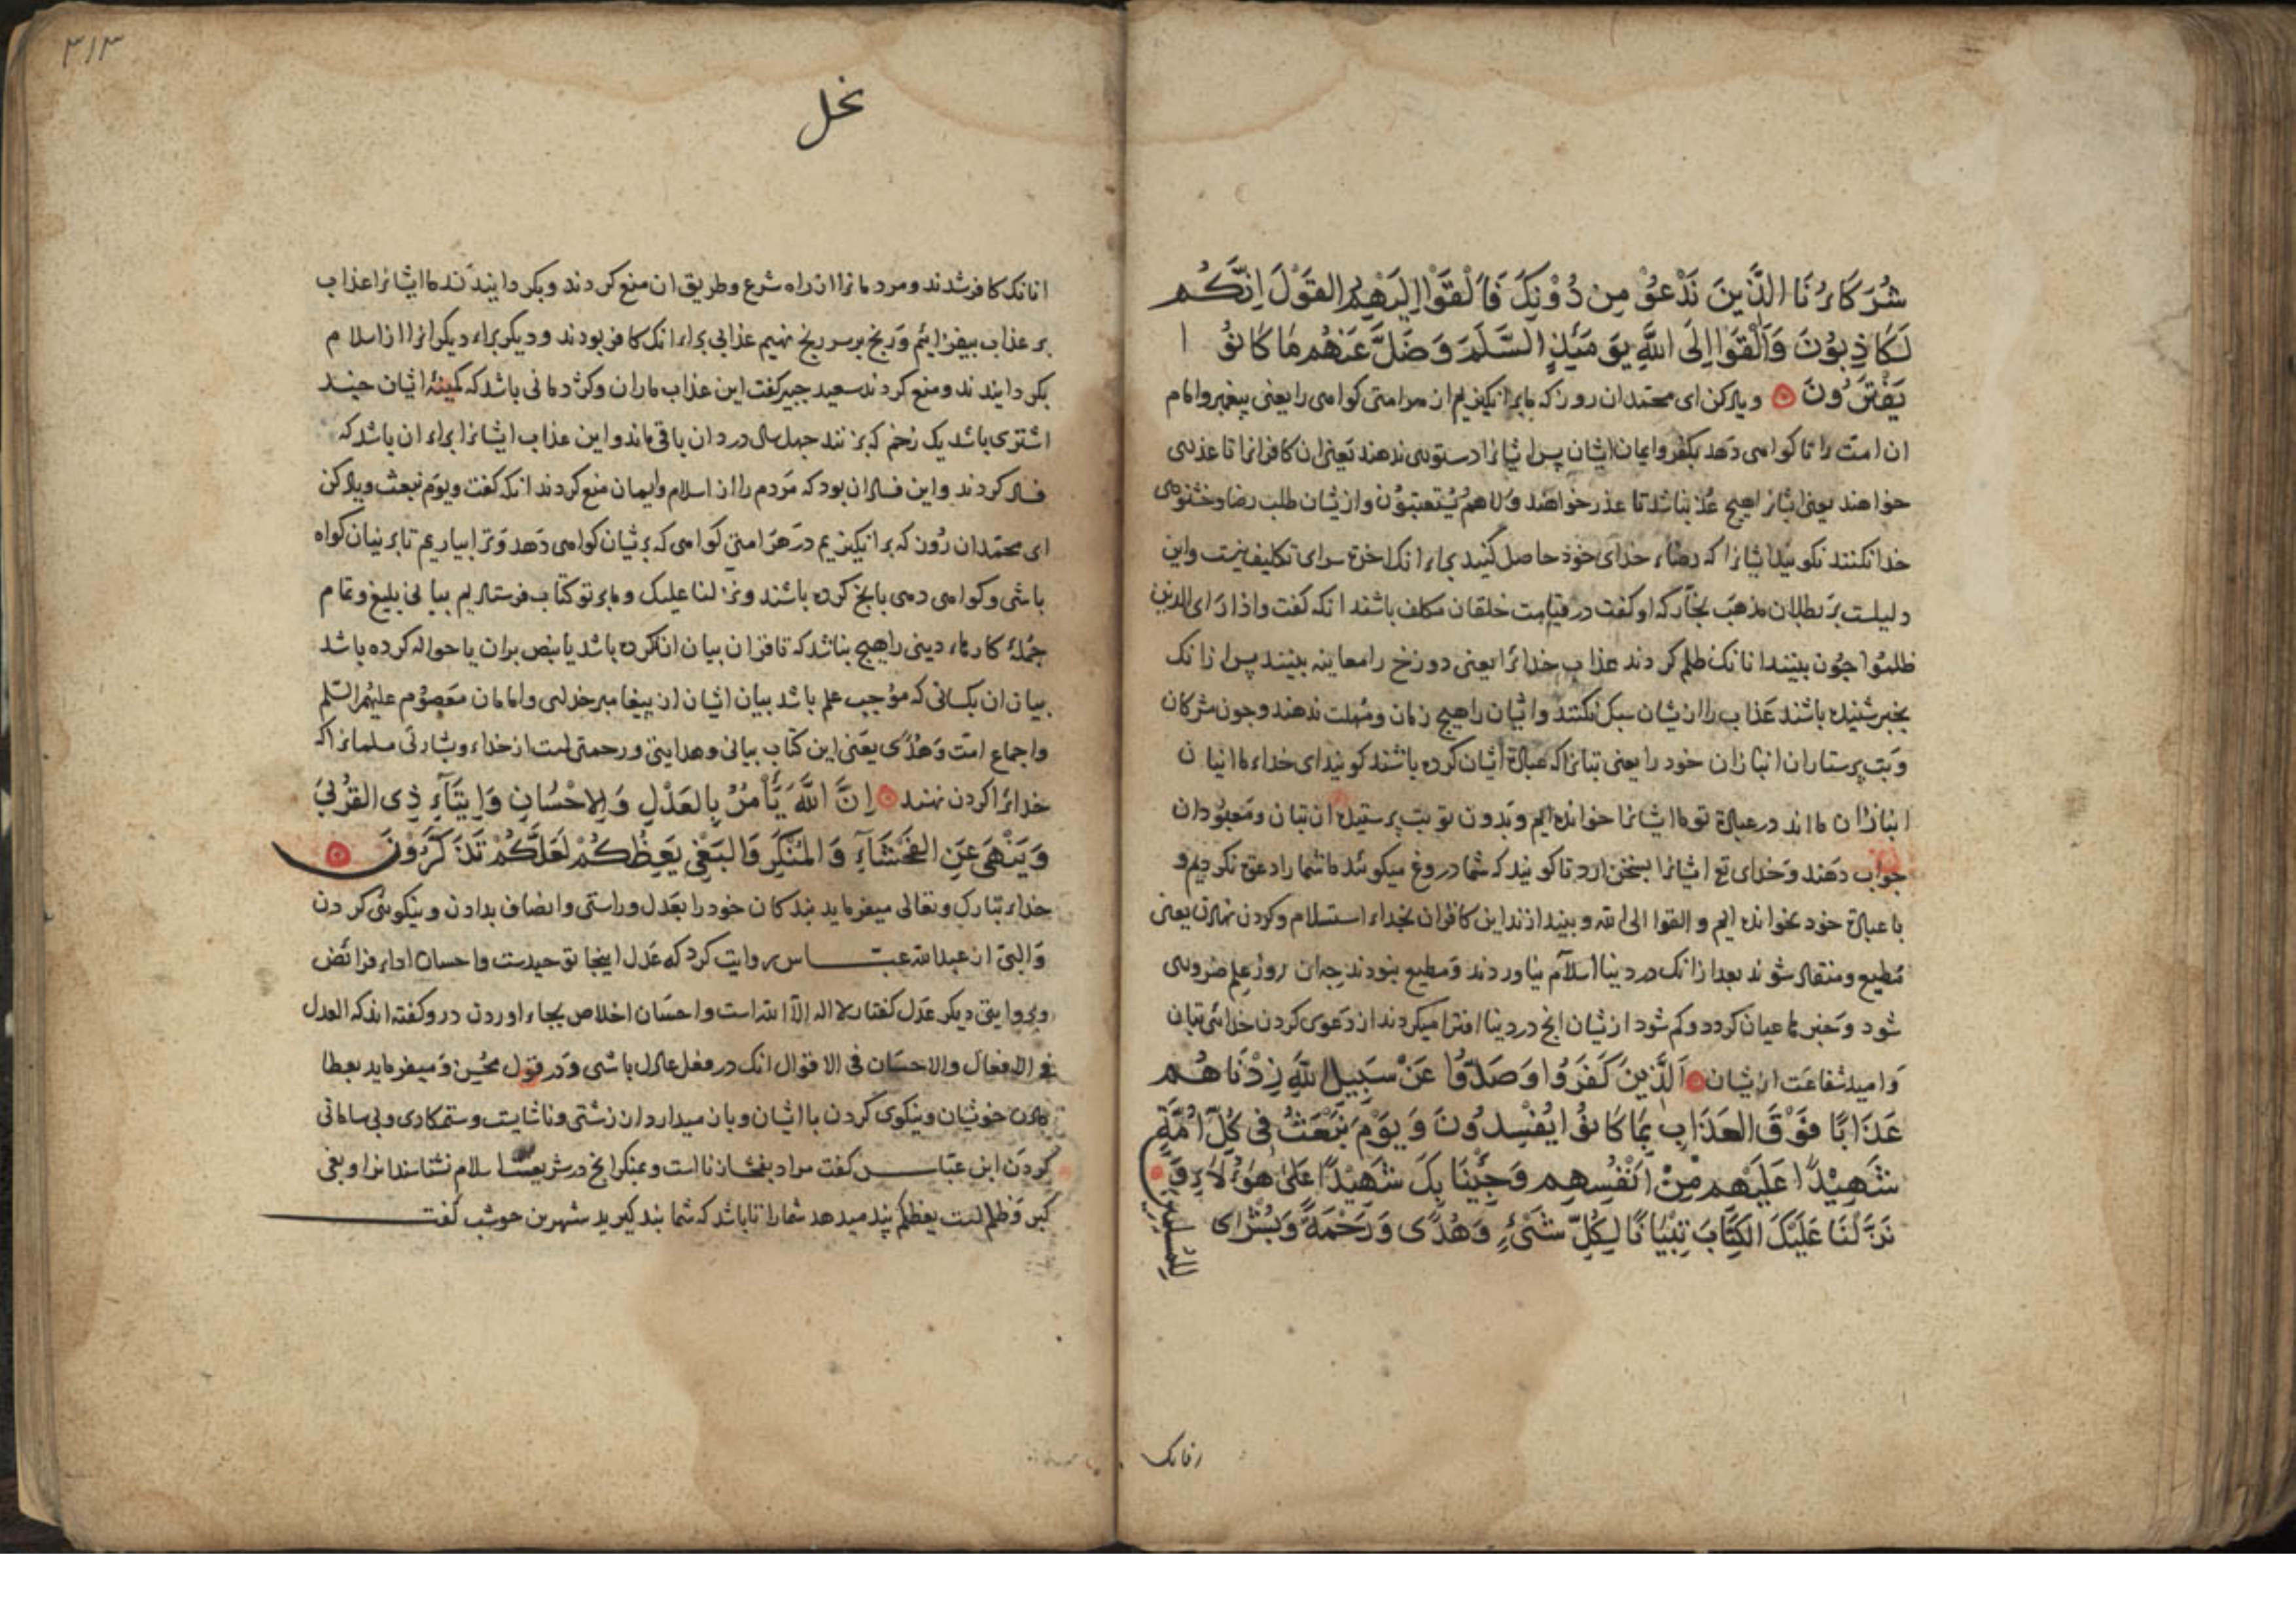 شُرَكَاؤُنَا الَّذِينَ نَدْعُوْ مِن دُوْنِكَ فَأَلْقَوْا اِلَيْهِمُ القَوْلَ اِنَّكُم
لَكَاذِبُوْنَ وَأَلْقَوْا اِلَى اللَّهِ يَوْمَئِذٍ السَّلَمَ وَضَلَّ عَنْهُم مَا كَانُوْا
يَفْتَرُونَ وياد كن اى محمد ان روز كه ما برانكيزيم از هر امتى كواهى را يعنى پيغمبر و امام
ان امت را تا كواهى دهد بكفر و ايمان ايشان پس ايشانرا دستورى ندهند يعنى ان كافرانرا تا عذرى
خواهند يعنى ايشانرا هيچ عذر نباشد تا عذر خواهند ولا هم يُستعتبوُن و از يشان طلب رضا و خشنودى
خدا نكنند نكويند ايشانرا كه رضاء خداى خود حاصل كنيد براء انك اخرت سراى تكليف نيست و اين
دليلست بر بطلان مذهب نجار كه او كفت در قيامت خلقان مكلف باشند انكه كفت واذا رَاى الذين
ظلموا چون بينند انانك ظلم كردند عذاب خدائرا يعنى دوزخ را معاينه بينند پس از انك
بخبر شنيده باشند عَذاب را از يشان سبك نكنند و ايشان را هيچ زمان و مُهلت ندهند و چون مشركان
و بت پرستاران انبازان خود را يعنى بتانرا كه عبادة ايشان كرده باشند كويند اى خداء ما اينان
انبازان ما اند در عبادة تو ما ايشانرا خوانده ايم و بدون تو بت پرستيده ان بتان و معبودان
جواب دهند و خداى تع ايشانرا بسخن ارد تا كويند كه شما دروغ ميكوئيد ما شما را دعوة نكرديم و
با عبادة خود نخوانده ايم و القوا الى الله و بيندازند اين كافران بخداء استسلام و كردن نهادن يعنى
مُطيع و منقاد شوند بعد از انك در دنيا اسلام نياوردند و مطيع نبودند چه ان روز علم ضرورى
شود و خبر ما عيان كردد و كم شود از يشان انچ در دنيا افترا ميكردند از دعوى كردن خدائى بتان
و اميد شفاعت از يشان اَلَّذِينَ كَفَرُوا وَصَدُّوْا عَنْ سَبِيلِ اللهِ زِدْنَاهُم
عَذَابًا فَوْقَ العَذَابِ بِمَا كَانُوْا يُفْسِدُونَ وَيَوْمَ نَبْعَثُ فِى كُلِّ اُمَّةٍ
شَهِيْدًا عَلَيْهِم مِنْ اَنْفُسِهِم وَجِئْنَا بِكَ شَهِيْدًا عَلَىٰ هٰؤُلَاءِ وَ
نَزَّلْنَا عَلَيْكَ الكِتَابَ تِبْيَانًا لِكُلِّ شَىْءٍ وَهُدًى وَرَحْمَةً وَبُشْرَاى
لِلْمُسْلِمِيْنَ
٣١٣
نحل
انانك كافر شدند و مردمانرا از راه شرع و طريق ان منع كردند و بكردانيدند ما ايشانرا عذاب
بر عذاب بيفزائيم و رنج بر سر رنج نهيم عذابى براء انك كافر بودند و ديكر براء ديكرانرا از اسلام
بكردانيدند و منع كردند سعيد جبير كفت اين عذاب ماران و كژدمانى باشد كه كمينهٔ ايشان چند
اشترى باشد يك زخم كه بزنند چهل سال درد ان باقى ماند و اين عذاب ايشانرا براء ان باشد كه
فساد كردند و اين فساد ان بود كه مردم را از اسلام و ايمان منع كردند انكه كفت ويوَم نبعث وياد كن
اى محمد ان روز كه برانكيزيم در هر امتى كواهى كه بريشان كواهى دهد و ترا بياريم تا بر نيان كواه
باشى و كواهى دهى با نچ كرده باشند ونزلنا عليك و ما بر تو كتاب فرستاديم بيانى بليغ و تمام
جملهٔ كارهاء دينى را هيچ نباشد كه نا قران بيان ان نكرده باشد يا بنص بران يا حواله كرده باشد
بيان ان بكسانى كه موجب علم باشد بيان ايشان از پيغامبر خداى و امامان معصوُم عليهم السّلم
و اجماع امت وَهُدًى يعنى اين كتاب بيانى و هدايتى و رحمتى است از خداء و بشارتى مسلمانرا كه
خدائرا كردن نهند اِنَّ اللَّهَ يَأْمُرُ بِالعَدْلِ وَالِاحْسَانِ وَاِيتَآءِ ذِى القُرْبَى
وَيَنْهَى عَنِ الفَحْشَآءِ وَالمُنْكَرِ وَالبَغْيِ يَعِظُكُمْ لَعَلَّكُمْ تَذَكَّرُونَ
خداء تبارك و تعالى ميفرمايد بندكان خود را بعَدل و راستى و انصاف بدادن و نيكوئى كردن
وَالبى از عبدالله عباس روايت كرد كه عَدل اينجا توحيدست و احسان اداء فرائض
و بروايتى ديكر عدل كفتار لا اله الّا الله است و احسَان اخلاص بجاء اوردن درو كفته اند كه العدل
فى الافعال والاحسَان فى الاقوال انك در فعل عادل باشى وَ در قول محُسِن و ميفرمايد بعطا
دادن خويشان و نيكوى كردن با ايشان و باز ميدارد از زشتى و ناشايست و ستمكارى و بى سامانى
كردَن ابن عبّاس كفت مراد بفحشا زنا است و بمنكر انچ در شريعت اسلام نشناسند انرا و بغى
كبر و ظلم است يعظكم پند ميدهد شما را تا باشد كه شما پند كيريد شهر بن حوشب كفت